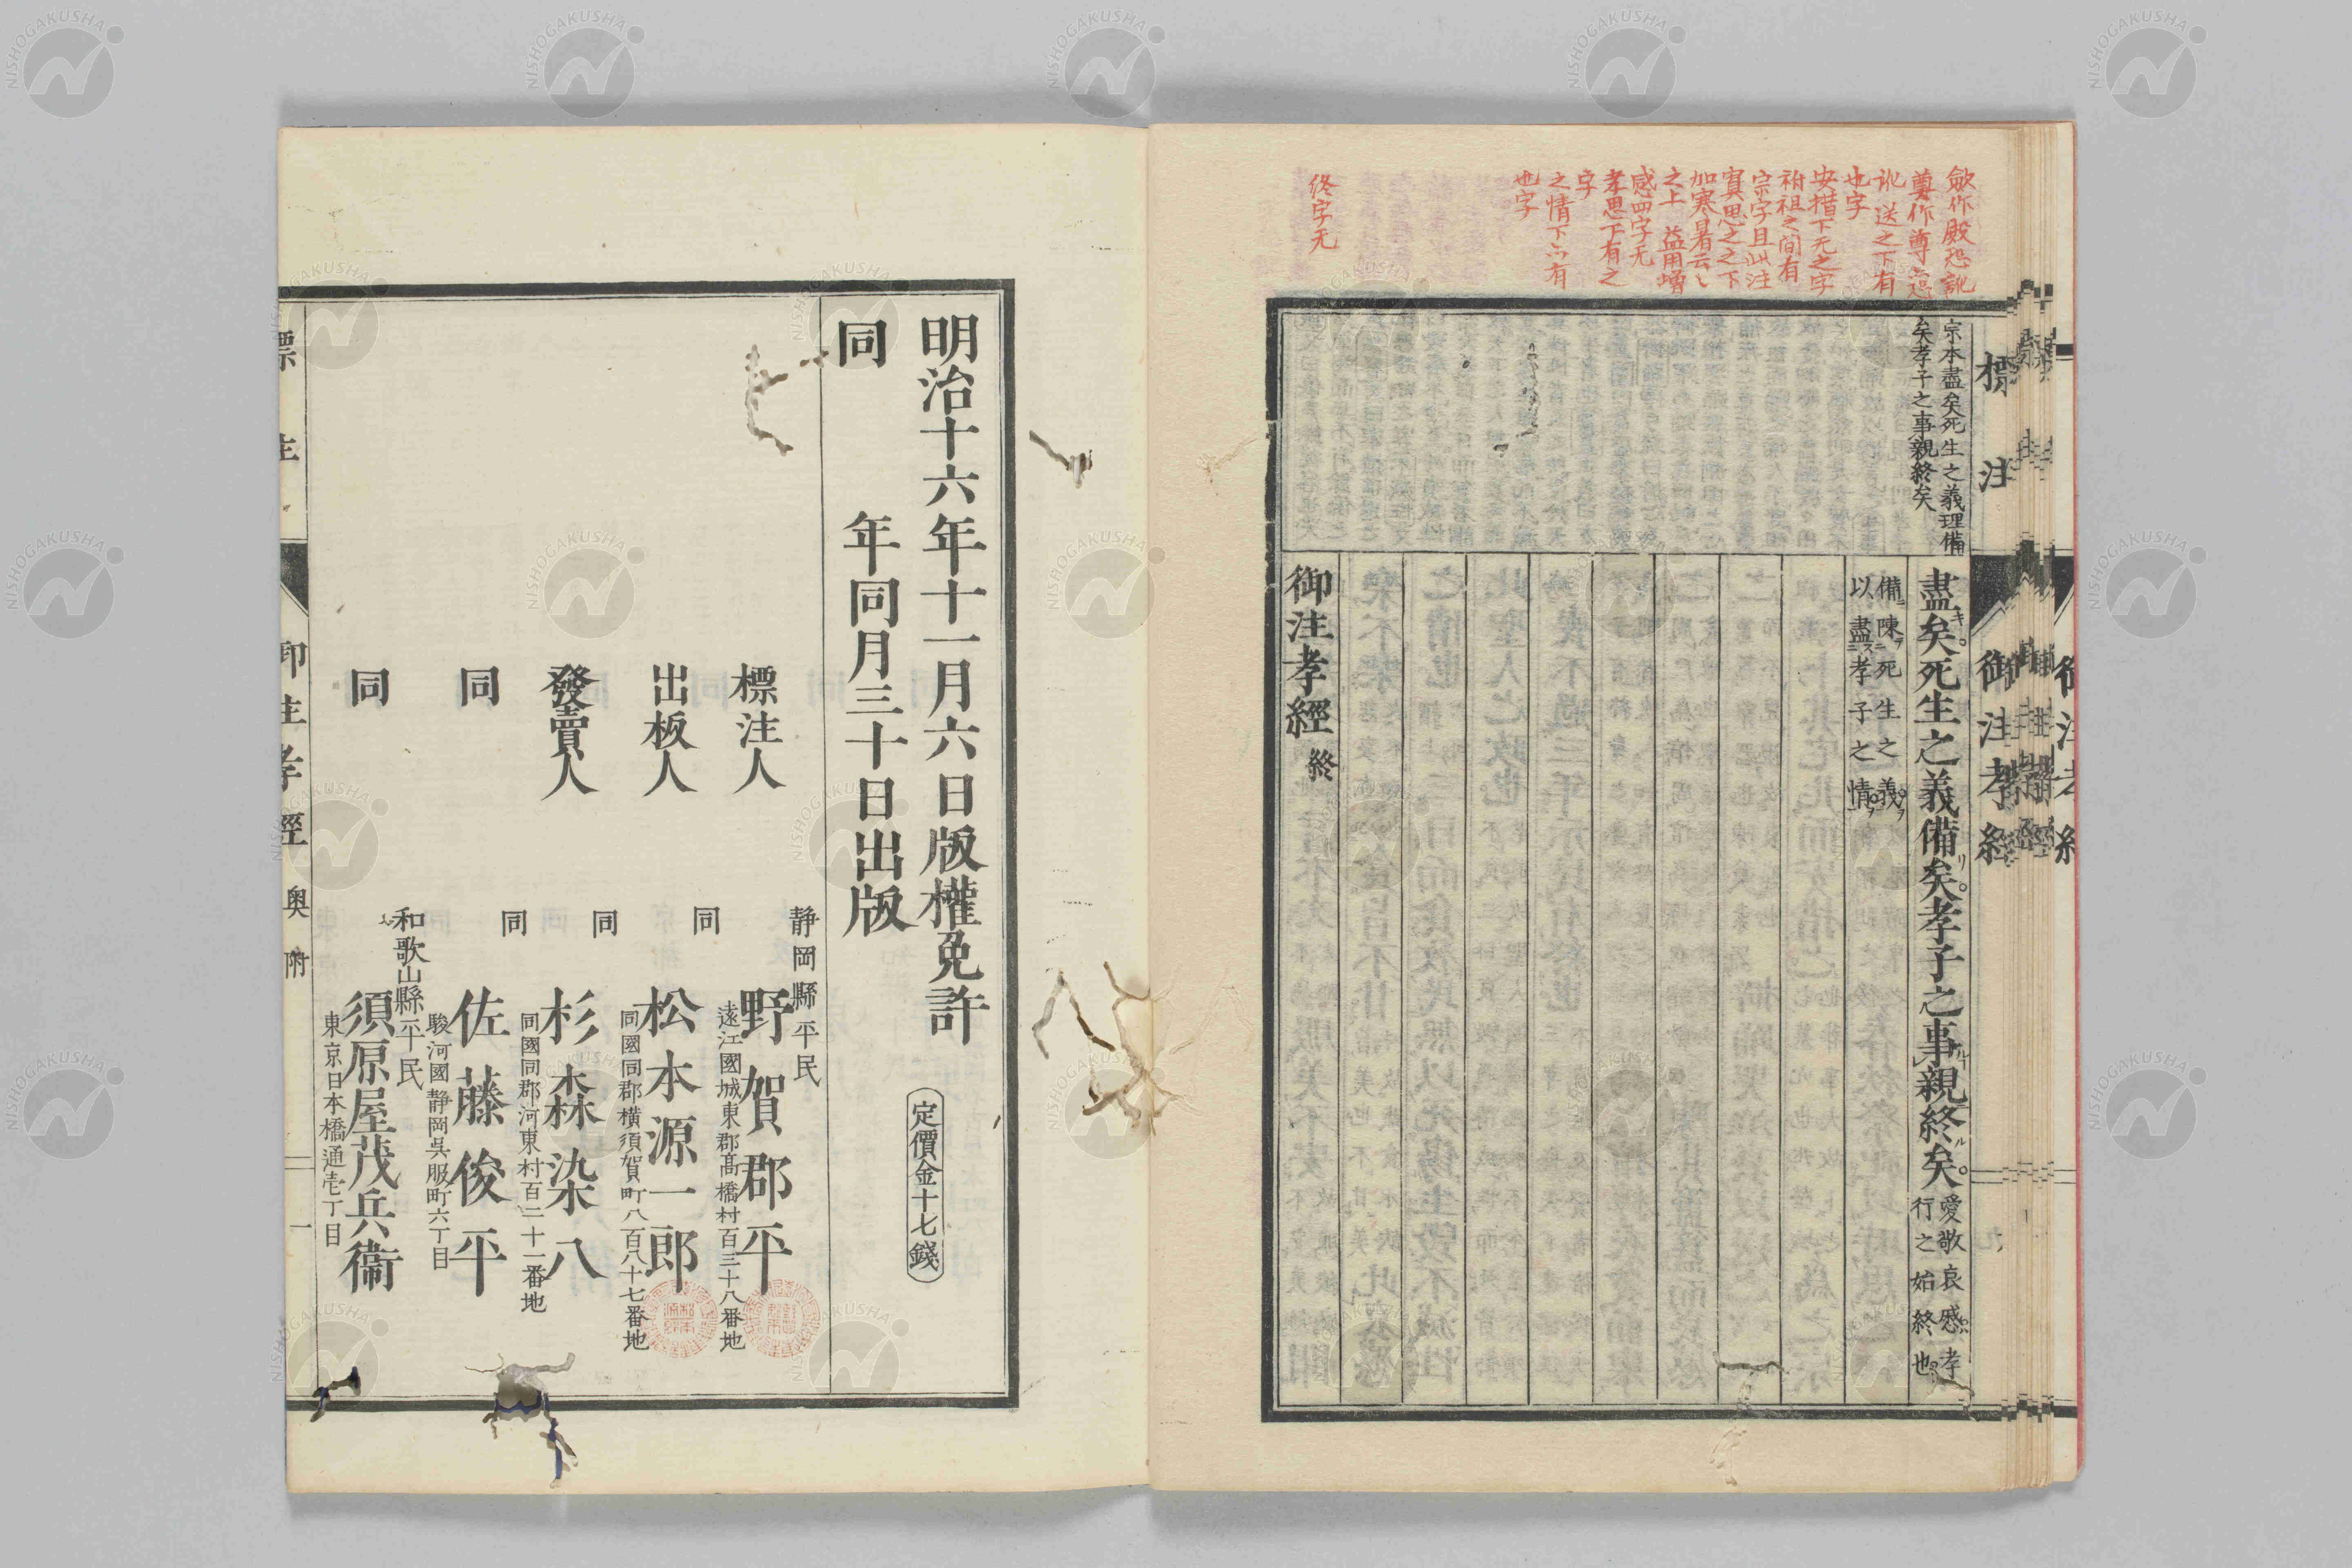 歛作殿恐訛
奠作尊恐
訛 送之下有
也字
安措下无之字
祔祖之間有
宗字且此注
寘思之之下
加寒暑云〻
之上 益用增
感四字无
孝思下有之
字
之情下六有
也字
終字无
標注 御注孝經
宗本盡矣死生之義理備
矣孝子之事親終矣
盡矣死生之義備矣孝子之事親終矣
愛敬哀慼孝
行之始終也
備陳死生之義
以盡孝子之情
御注孝經 終
明治十六年十一月六日版權免許
定價金十七錢
同 年同月三十日出版
靜岡縣平民
標注人 野賀郡平
遠江國城東郡髙橋村百三十八番地
同
出板人 松本源一郎
同國同郡横須賀町八百八十七番地
同
發賣人 杉森染八
同國同郡河東村百二十一番地
同
同 佐藤俊平
駿河國靜岡呉服町六丁目
和歌山縣平民
同 須原屋茂兵衞
東京日本橋通壱丁目
標注 御注孝經 奥附 一
NISHOGAKUSHA